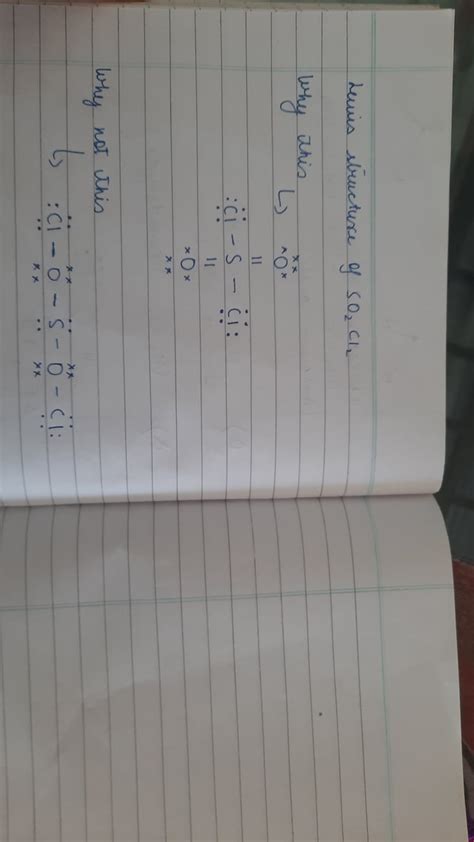 Lewis structure of SO₂Cl₂
Why this ↳
xx
xOx
||
:Cl – S – Cl:
||
xOx
xx
Why not this
↳ :Cl – O – S – O – Cl: